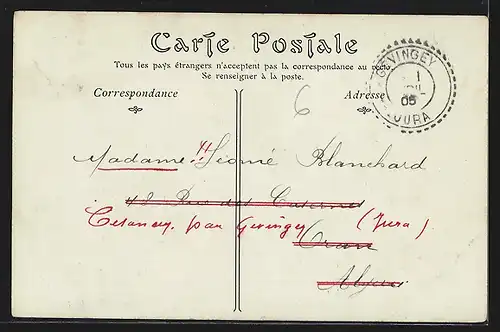 Carte Postale
Tous les pays étrangers n'acceptent pas la correspondance au recto
Se renseigner à la poste.
Correspondance
Adresse
GEVINGEY
1
05
JURA
6
Madame Blanchard
48 Rue des Casernes
Cesancey par Gevingey (Jura)
Oran